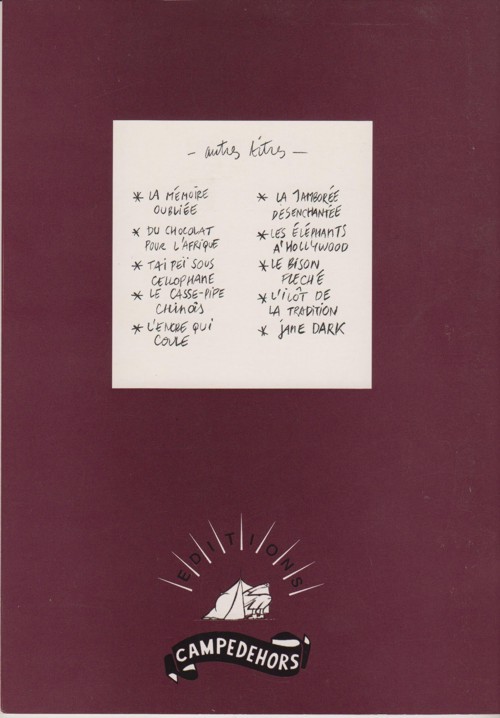 - autres titres -
* LA MÉMOIRE
OUBLIÉE
* DU CHOCOLAT
POUR L'AFRIQUE
* TAIPEÏ SOUS
CELLOPHANE
* LE CASSE-PIPE
CHINOIS
* L'ENCRE QUI
COULE
* LA JAMBORÉE
DESENCHANTÉE
* LES ÉLÉPHANTS
A HOLLYWOOD
* LE BISON
FLECHÉ
* L'ILÔT DE
LA TRADITION
* JANE DARK
EDITIONS
CAMPEDEHORS